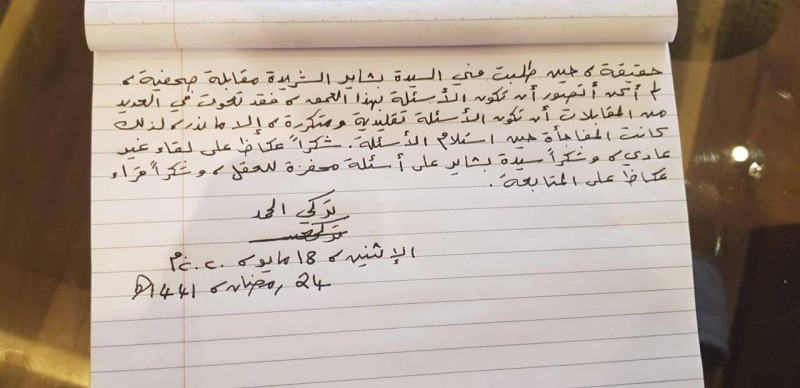 حقيقة، حين طلبت مني السيدة بشاير الشريدة مقابلة صحفية،
لم أكن أتصور أن تكون الأسئلة بهذا العمق، فقد تعودت في العديد
من المقابلات أن تكون الأسئلة تقليدية ومتكررة، إلا ما ندر، لذلك
كانت المفاجأة حين استلام الأسئلة. شكراً عكاظ على لقاء غير
عادي، وشكراً سيدة بشاير على أسئلة محفزة للعقل، وشكراً قراء
عكاظ على المتابعة.
تركي الحمد
الإثنين، 18 مايو، ٢٠٢٠م
24 رمضان، 1441هـ